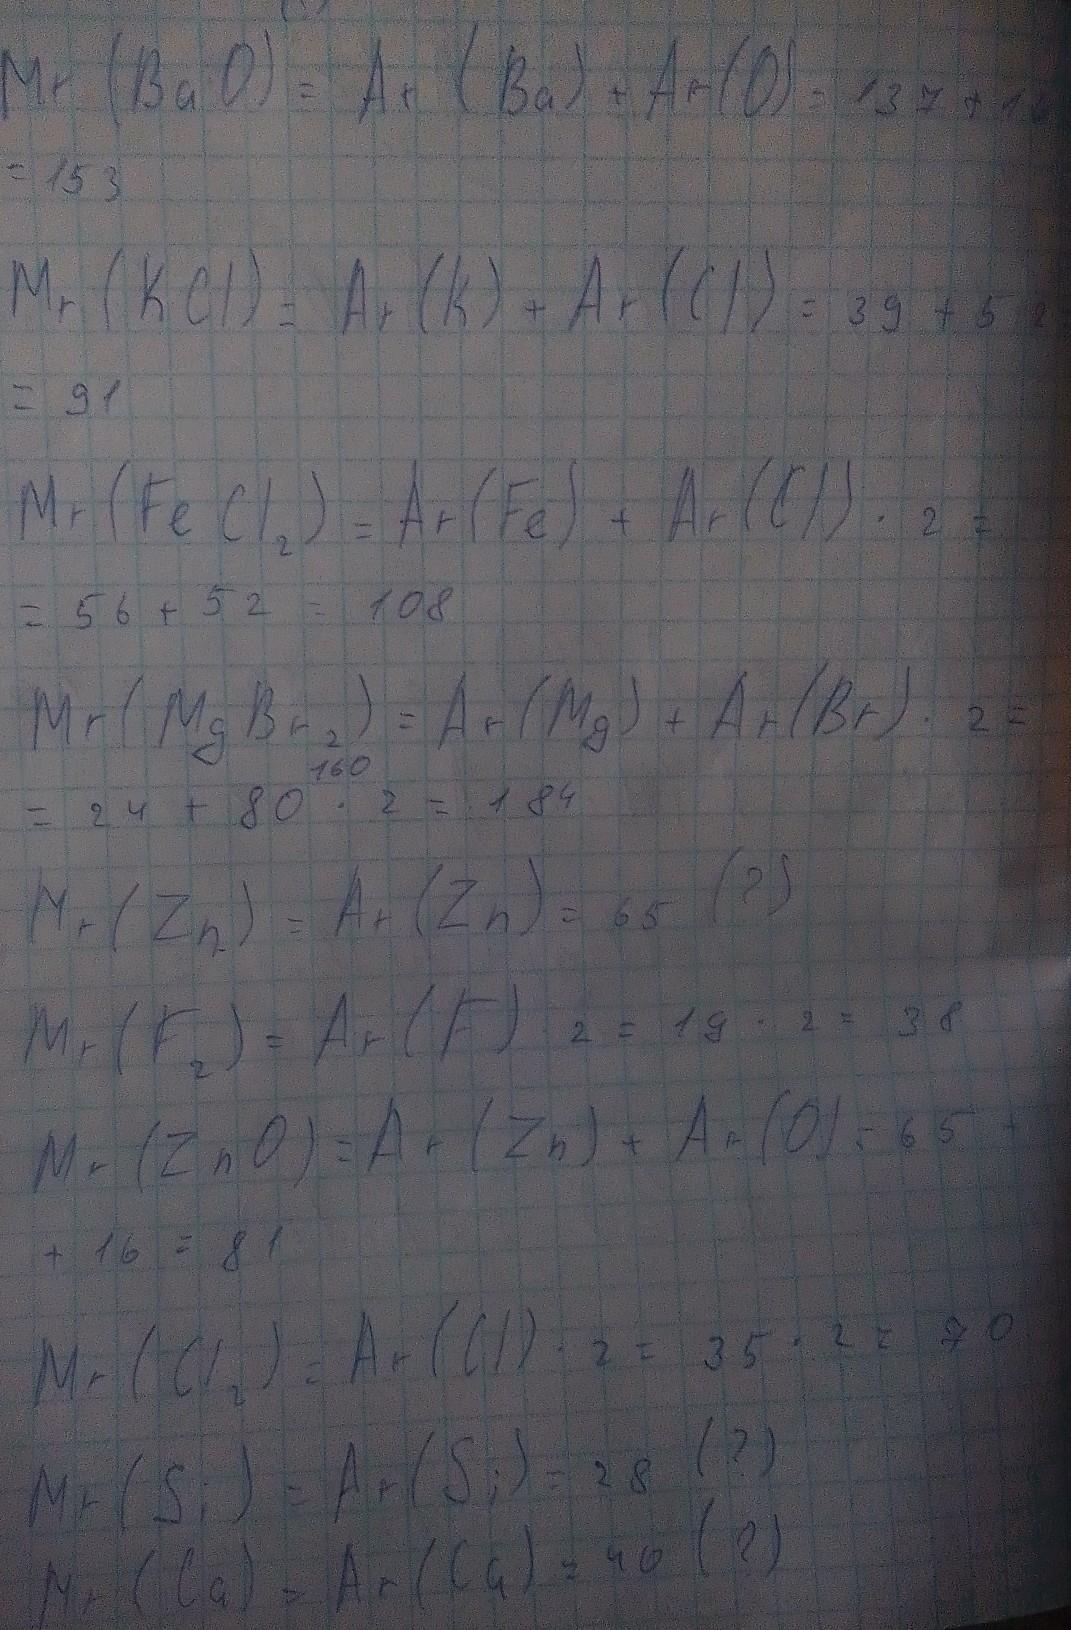 Mr (BaO) = Ar (Ba) + Ar(O) = 137 + 16
= 153
Mr (KCl) = Ar (K) + Ar (Cl) = 39 + 52
= 91
Mr (FeCl₂) = Ar (Fe) + Ar (Cl) · 2 =
= 56 + 52 = 108
Mr (MgBr₂) = Ar (Mg) + Ar (Br) · 2 =
160
= 24 + 80 · 2 = 184
Mr (Zn) = Ar (Zn) = 65 (?)
Mr (F₂) = Ar (F) · 2 = 19 · 2 = 38
Mr (ZnO) = Ar (Zn) + Ar (O) = 65 +
+ 16 = 81
Mr (Cl₂) = Ar (Cl) · 2 = 35 · 2 = 70
Mr (Si) = Ar (Si) = 28 (?)
Mr (Ca) = Ar (Ca) = 40 (?)